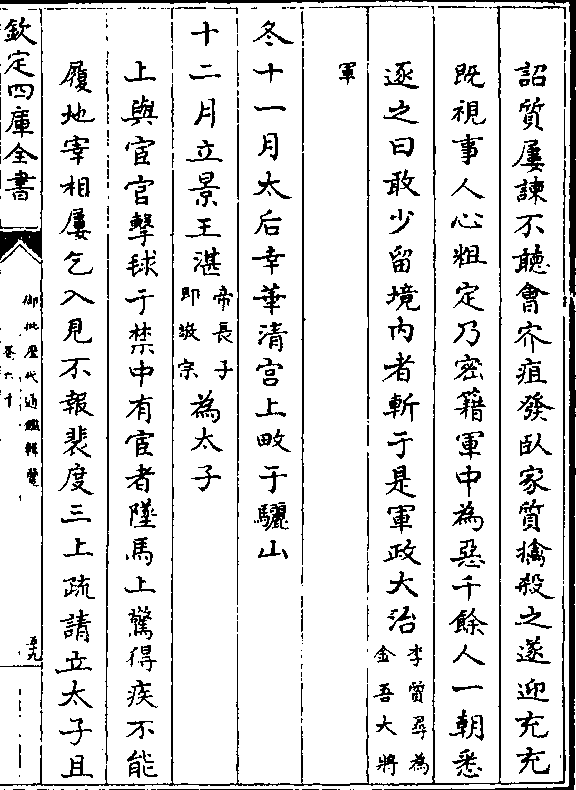 詔質屢諫不聽會㝏疽發卧家質擒殺之遂迎充充
既視事人心粗定乃密籍軍中為惡千餘人一朝悉
逐之曰敢少留境內者斬于是軍政大治李質尋為金吾大將
軍
冬十一月太后幸華清宮上畋于驪山
十二月立景王湛帝長子即敬宗為太子
上與宦官擊毬于禁中有宦者墜馬上驚得疾不能
履地宰相屢乞入見不報裴度三上疏請立太子且
欽定四庫全書
御批歷代通鑑輯覽
卷六十
五九